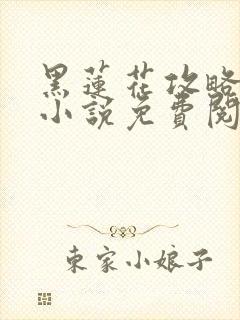 黑蓮花攻略
小說免費閱
東家小娘子